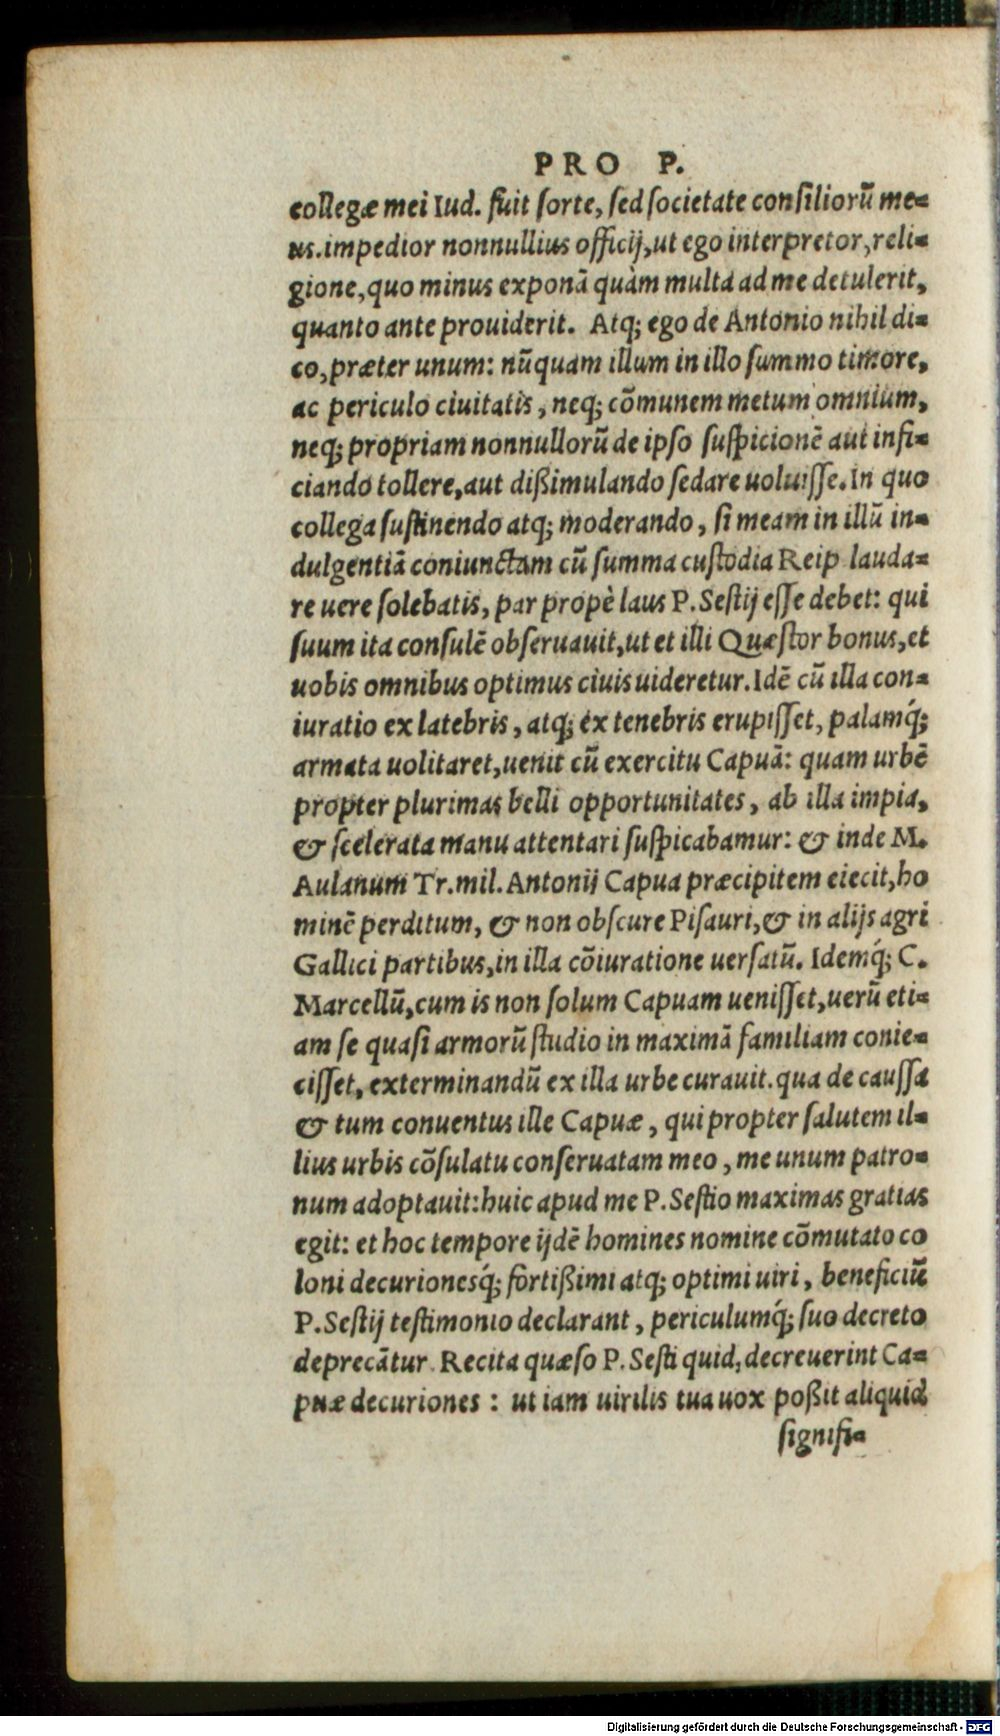 PRO P.
collegæ mei Iud. fuit sorte, sed societate consiliorũ me-
us. impedior nonnullius officij, ut ego interpretor, reli-
gione, quo minus exponã quàm multa ad me detulerit,
quanto ante prouiderit. Atq; ego de Antonio nihil di-
co, præter unum: nũquam illum in illo summo timore,
ac periculo ciuitatis, neq; cõmunem metum omnium,
neq; propriam nonnullorũ de ipso suspicionẽ aut infi-
ciando tollere, aut dißimulando sedare uoluisse. In quo
collega sustinendo atq; moderando, si meam in illũ in-
dulgentiã coniunctam cũ summa custodia Reip lauda-
re uere solebatis, par propè laus P. Sestij esse debet: qui
suum ita consulẽ obseruauit, ut et illi Quæstor bonus, et
uobis omnibus optimus ciuis uideretur. Idẽ cũ illa con-
iuratio ex latebris, atq; ex tenebris erupisset, palamq́;
armata uolitaret, uenit cũ exercitu Capuã: quam urbẽ
propter plurimas belli opportunitates, ab illa impia,
& scelerata manu attentari suspicabamur: & inde M.
Aulanum Tr. mil. Antonij Capua præcipitem eiecit, ho
minẽ perditum, & non obscure Pisauri, & in alijs agri
Gallici partibus, in illa cõiuratione uersatũ. Idemq́; C.
Marcellũ, cum is non solum Capuam uenisset, uerũ eti-
am se quasi armorũ studio in maximã familiam conie-
cisset, exterminandũ ex illa urbe curauit. qua de caussa
& tum conuentus ille Capuæ, qui propter salutem il-
lius urbis cõsulatu conseruatam meo, me unum patro-
num adoptauit: huic apud me P. Sestio maximas gratias
egit: et hoc tempore ijdẽ homines nomine cõmutato co
loni decurionesq́; fortißimi atq; optimi uiri, beneficiũ
P. Sestij testimonio declarant, periculumq́; suo decreto
deprecãtur. Recita quæso P. Sesti quid, decreuerint Ca-
puæ decuriones: ut iam uirilis tua uox poßit aliquid
signifi-
Digitalisierung gefördert durch die Deutsche Forschungsgemeinschaft - DFG